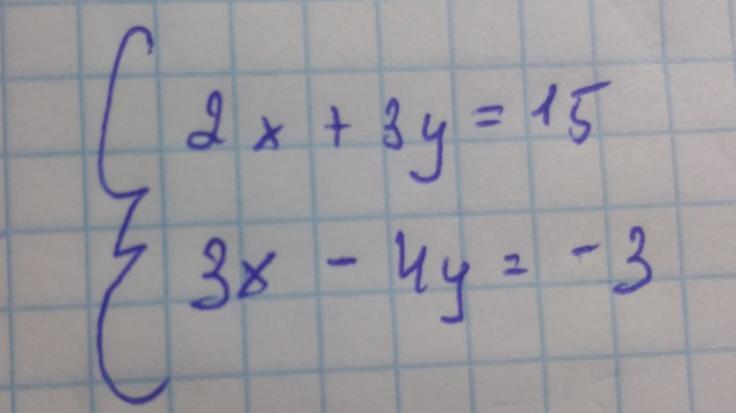 2x + 3y = 15
3x - 4y = -3